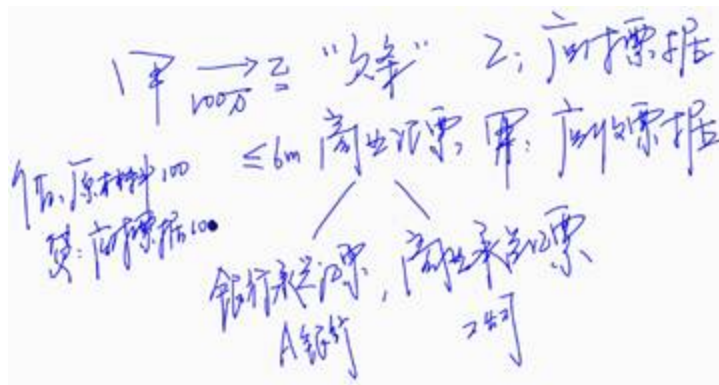 甲 → 乙 "欠条" 乙:应付票据
100万
≤6m 商业汇票, 甲:应收票据
借:原材料 100
贷:应付票据 100
银行承兑汇票,商业承兑汇票
A银行 乙公司